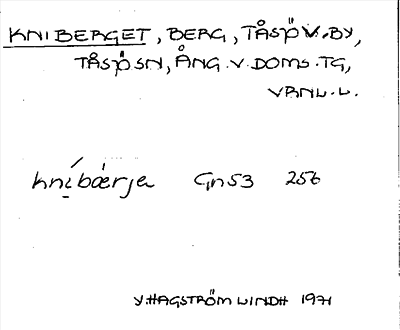 KNIBERGET, BERG, TÅSJÖ V. BY,
TÅSJÖ SN, ÅNG. V. DOMS. TG,
VBNL. L.
kníbǽrja Gn53 256
Y. HAGSTRÖM LINDH 1971